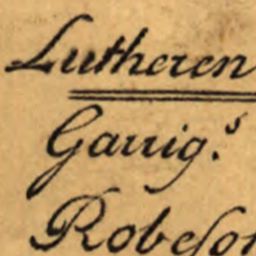 Lutheren
Garrig.s
Robeson